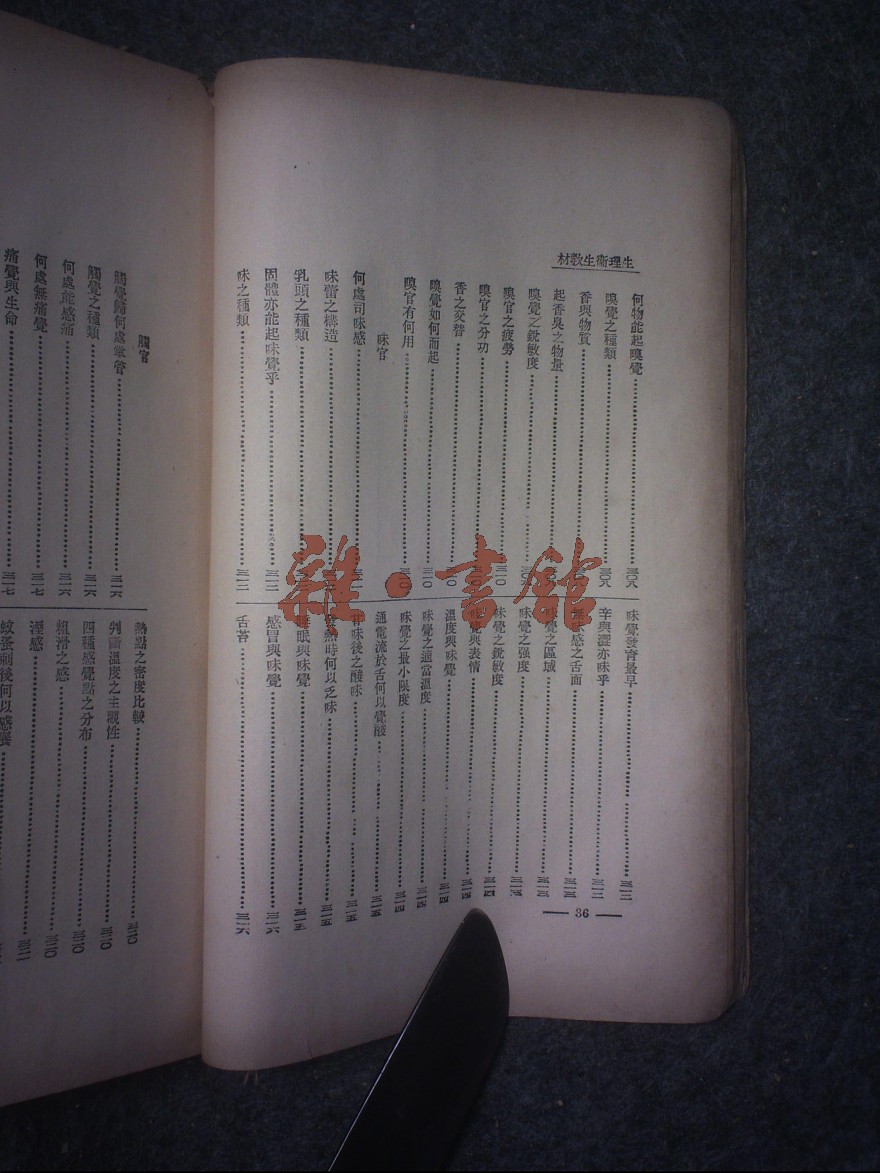 生理衛生教材
何物能起嗅覺……三〇八
嗅覺之種類……三〇八
香與物質
起香臭之物量
嗅覺之銳敏度……三〇九
嗅官之疲勞……三一〇
嗅官之分功
香之交替……三一〇
嗅覺如何而起……三一〇
嗅官有何用……三一〇
味官
何處司味感
味蕾之構造
乳頭之種類
固體亦能起味覺乎……三一二
味之種類……三一二
味覺發育最早……三一二
辛與澀亦味乎……三一二
無味感之舌面……三一三
味覺之區域……三一三
味覺之强度……三一三
味覺之銳敏度……三一四
味覺與表情……三一四
溫度與味覺……三一四
味覺之適當溫度……三一四
味覺之最小限度……三一四
通電流於舌何以覺酸……三一五
甘味後之酸味……三一五
發熱時何以乏味……三一五
睡眠與味覺……三一五
感冒與味覺……三一六
舌苔……三一六
— 36 —
觸官
觸覺歸何處掌管……三一六
觸覺之種類……三一六
何處能感痛……三一六
何處無痛覺……三一七
痛覺與生命……三一七
熱點之密度比較……三二〇
判斷溫度之主觀性……三二〇
四種感覺點之分布……三二〇
粗滑之感……三二〇
溼感……三二一
蚊蚤刺後何以感癢
雜·書館